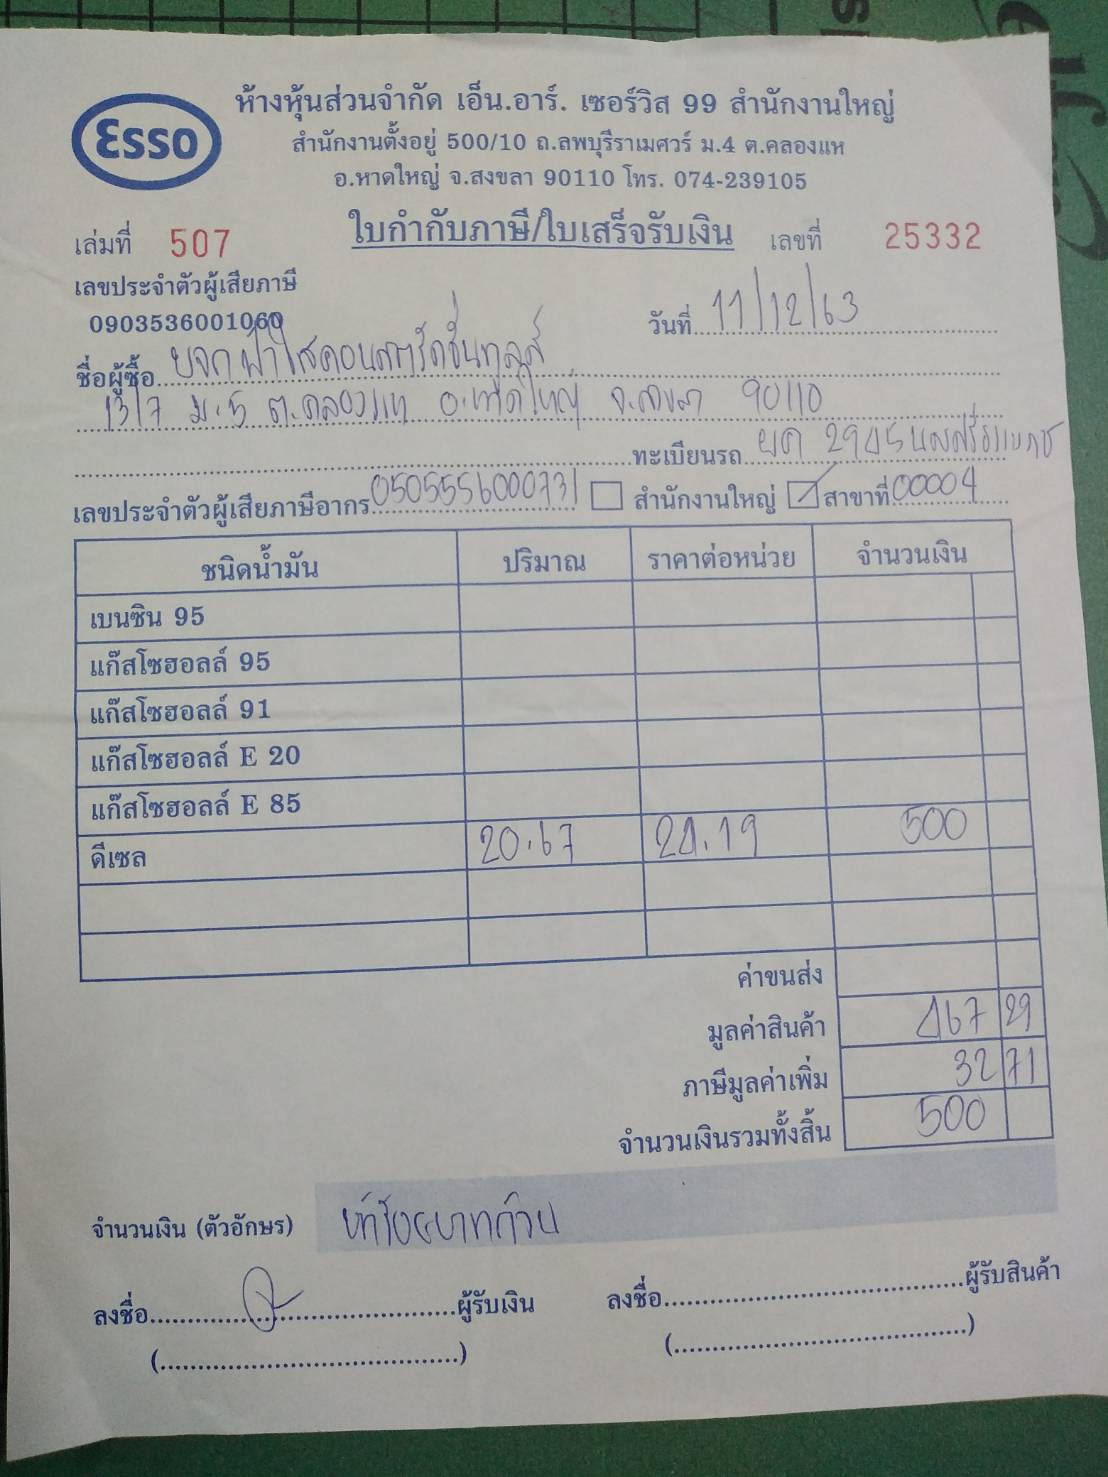 Esso
ห้างหุ้นส่วนจำกัด เอ็น.อาร์. เซอร์วิส 99 สำนักงานใหญ่
สำนักงานตั้งอยู่ 500/10 ถ.ลพบุรีราเมศวร์ ม.4 ต.คลองแห
อ.หาดใหญ่ จ.สงขลา 90110 โทร. 074-239105
เล่มที่ 507 ใบกำกับภาษี/ใบเสร็จรับเงิน เลขที่ 25332
เลขประจำตัวผู้เสียภาษี
0903536001060 วันที่ 11/12/63
ชื่อผู้ซื้อ บจก ฟ้าใสคอนสตรัคชั่นทูลส์
13/7 ม.5 ต.คลองแห อ.หาดใหญ่ จ.สงขลา 90110
ทะเบียนรถ ยค 2945 นครศรีธรรมราช
เลขประจำตัวผู้เสียภาษีอากร 0505556000731 สำนักงานใหญ่ สาขาที่ 00004
ชนิดน้ำมัน ปริมาณ ราคาต่อหน่วย จำนวนเงิน
เบนซิน 95
แก๊สโซฮอลล์ 95
แก๊สโซฮอลล์ 91
แก๊สโซฮอลล์ E 20
แก๊สโซฮอลล์ E 85
ดีเซล 20.67 24.19 500
ค่าขนส่ง
มูลค่าสินค้า 467 29
ภาษีมูลค่าเพิ่ม 32 71
จำนวนเงินรวมทั้งสิ้น 500
จำนวนเงิน (ตัวอักษร) ห้าร้อยบาทถ้วน
ลงชื่อ ผู้รับเงิน ลงชื่อ ผู้รับสินค้า